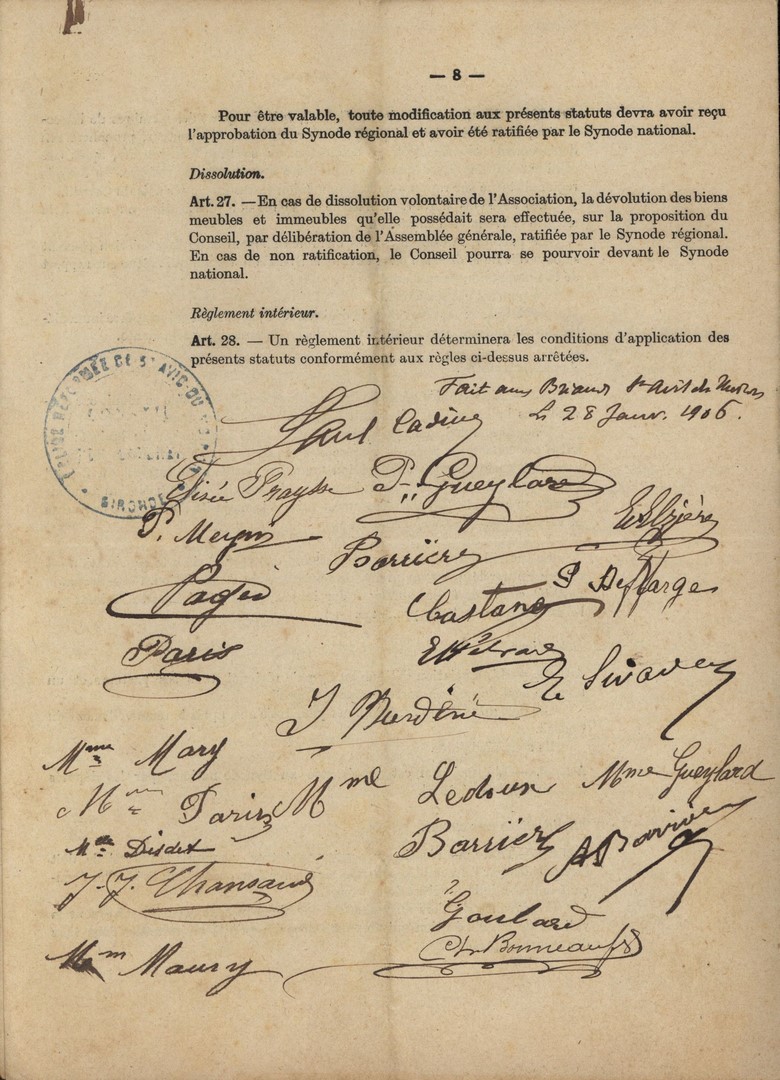 — 8 —
Pour être valable, toute modification aux présents statuts devra avoir reçu
l'approbation du Synode régional et avoir été ratifiée par le Synode national.
Dissolution.
Art. 27. — En cas de dissolution volontaire de l'Association, la dévolution des biens
meubles et immeubles qu'elle possédait sera effectuée, sur la proposition du
Conseil, par délibération de l'Assemblée générale, ratifiée par le Synode régional.
En cas de non ratification, le Conseil pourra se pourvoir devant le Synode
national.
Règlement intérieur.
Art. 28. — Un règlement intérieur déterminera les conditions d'application des
présents statuts conformément aux règles ci-dessus arrêtées.
Fait aux Briauds St Avit du
le 28 Janv. 1906.
ÉGLISE RÉFORMÉE DE ST AVIT DU
GIRONDE
Paul Cadène
Elisée Praysse
P. Gueylard
P. Meynis
Barrière
Pagès
Castang
P. Deffarge
Paris
E. Sivadey
Mme Mary
Mme Paris
Mme Ledoux
Mme Gueylard
Barrière
J. J.
Goulard
Ch. Bonneau
Mm Maury